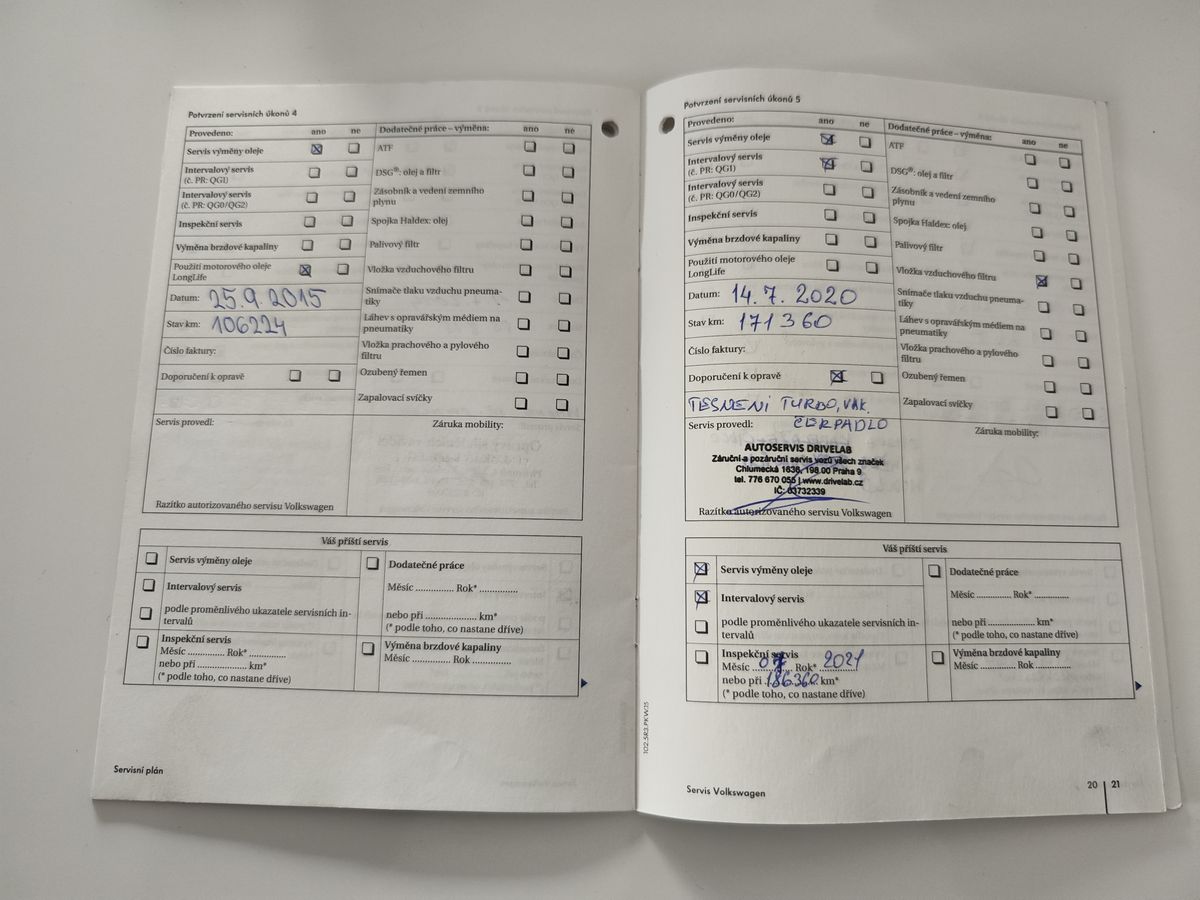 Potvrzení servisních úkonů 4
Provedeno: ano ne Dodatečné práce – výměna: ano ne
Servis výměny oleje
ATF
Intervalový servis
(č. PR: QG1)
DSG®: olej a filtr
Intervalový servis
(č. PR: QG0/QG2)
Zásobník a vedení zemního
plynu
Inspekční servis
Spojka Haldex: olej
Výměna brzdové kapaliny
Palivový filtr
Použití motorového oleje
LongLife
Vložka vzduchového filtru
Datum: 25.9.2015
Snímače tlaku vzduchu pneuma-
tiky
Stav km: 106224
Láhev s opravářským médiem na
pneumatiky
Číslo faktury:
Vložka prachového a pylového
filtru
Doporučení k opravě
Ozubený řemen
Zapalovací svíčky
Servis provedl:
Záruka mobility:
Razítko autorizovaného servisu Volkswagen
Váš příští servis
Servis výměny oleje
Dodatečné práce
Intervalový servis
Měsíc ............... Rok* ...............
podle proměnlivého ukazatele servisních in-
tervalů
nebo při .................... km*
(* podle toho, co nastane dříve)
Inspekční servis
Měsíc ............... Rok* ...............
nebo při .................... km*
(* podle toho, co nastane dříve)
Výměna brzdové kapaliny
Měsíc ............... Rok ...............
Servisní plán
Potvrzení servisních úkonů 5
Provedeno: ano ne Dodatečné práce – výměna: ano ne
Servis výměny oleje
ATF
Intervalový servis
(č. PR: QG1)
DSG®: olej a filtr
Intervalový servis
(č. PR: QG0/QG2)
Zásobník a vedení zemního
plynu
Inspekční servis
Spojka Haldex: olej
Výměna brzdové kapaliny
Palivový filtr
Použití motorového oleje
LongLife
Vložka vzduchového filtru
Datum: 14.7.2020
Snímače tlaku vzduchu pneuma-
tiky
Stav km: 171360
Láhev s opravářským médiem na
pneumatiky
Číslo faktury:
Vložka prachového a pylového
filtru
Doporučení k opravě
Ozubený řemen
TESNENI TURBO, VAK.
Zapalovací svíčky
Servis provedl: ČERPADLO
Záruka mobility:
AUTOSERVIS DRIVELAB
Záruční a pozáruční servis vozů všech značek
Chlumecká 1636, 198 00 Praha 9
tel. 776 670 055 | www.drivelab.cz
IČ: 03732339
Razítko autorizovaného servisu Volkswagen
Váš příští servis
Servis výměny oleje
Dodatečné práce
Intervalový servis
Měsíc ............... Rok* ...............
podle proměnlivého ukazatele servisních in-
tervalů
nebo při .................... km*
(* podle toho, co nastane dříve)
Inspekční servis
Měsíc 07 Rok* 2021
nebo při 186360 km*
(* podle toho, co nastane dříve)
Výměna brzdové kapaliny
Měsíc ............... Rok ...............
102.5R3.PKW.15
Servis Volkswagen
20 | 21